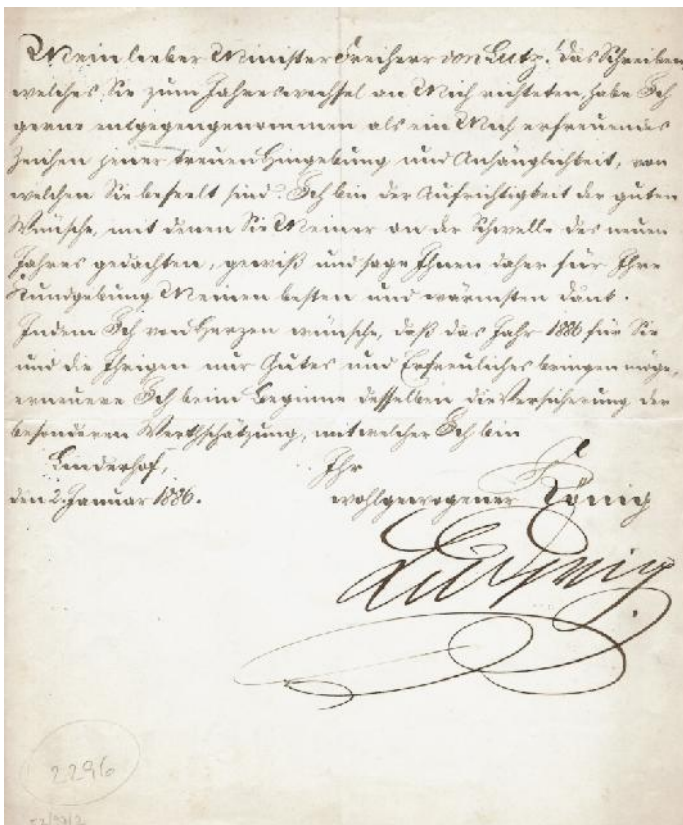 Mein lieber Minister Freiherr von Lutz! Das Schreiben,
welches Sie zum Jahreswechsel an Mich richteten, habe Ich
gerne entgegengenommen als ein Mich erfreuendes
Zeichen jener treuen Hingebung und Anhänglichkeit, von
welchen Sie beseelt sind. Ich bin der Aufrichtigkeit der guten
Wünsche, mit denen Sie Meiner an der Schwelle des neuen
Jahres gedachten, gewiß und sage Ihnen daher für Ihre
Kundgebung Meinen besten und wärmsten Dank.
Indem Ich von Herzen wünsche, daß das Jahr 1886 für Sie
und die Ihrigen nur Gutes und Erfreuliches bringen möge,
erneuere Ich beim Beginne desselben die Versicherung der
besonderen Werthschätzung, mit welcher Ich bin
Linderhof, Ihr
den 2. Januar 1886. wohlgewogener König
Ludwig
2296